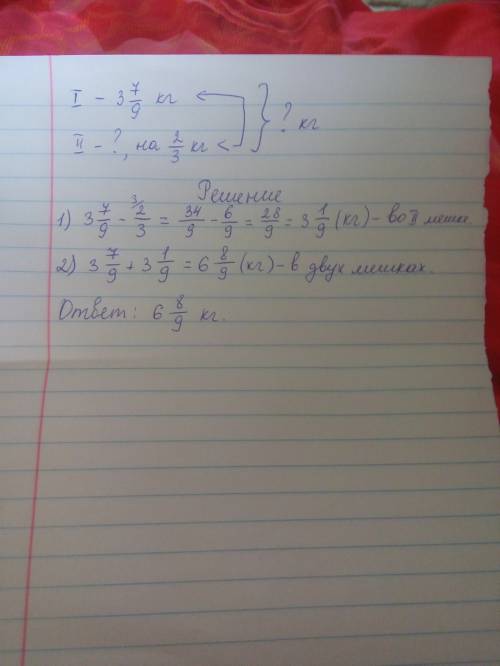 I – 3 7/9 кг
} ? кг
II – ?, на 2/3 кг <
Решение
1) 3 7/9 – 2/3 = 34/9 – 6/9 = 28/9 = 3 1/9 (кг) – во II мешке.
2) 3 7/9 + 3 1/9 = 6 8/9 (кг) – в двух мешках.
Ответ: 6 8/9 кг.